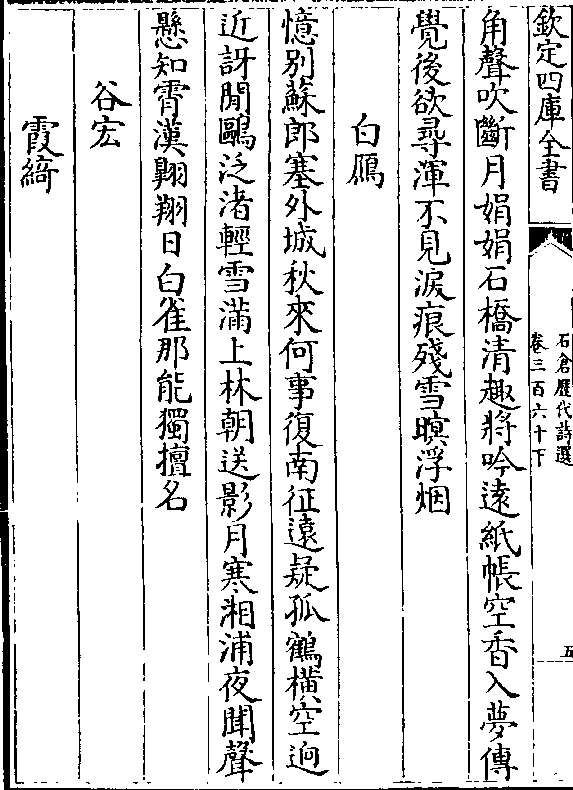 欽定四庫全書
石倉歷代詩選
卷三百六十下
五
角聲吹斷月娟娟石橋清趣將吟遠紙帳空香入夢傳
覺後欲尋渾不見淚痕殘雪暝浮烟
白鴈
憶别蘇郎塞外城秋來何事復南征遠疑孤鶴横空逈
近訝閒鷗泛渚輕雪滿上林朝送影月寒湘浦夜聞聲
懸知霄漢翺翔日白雀那能獨擅名
谷宏
霞綺